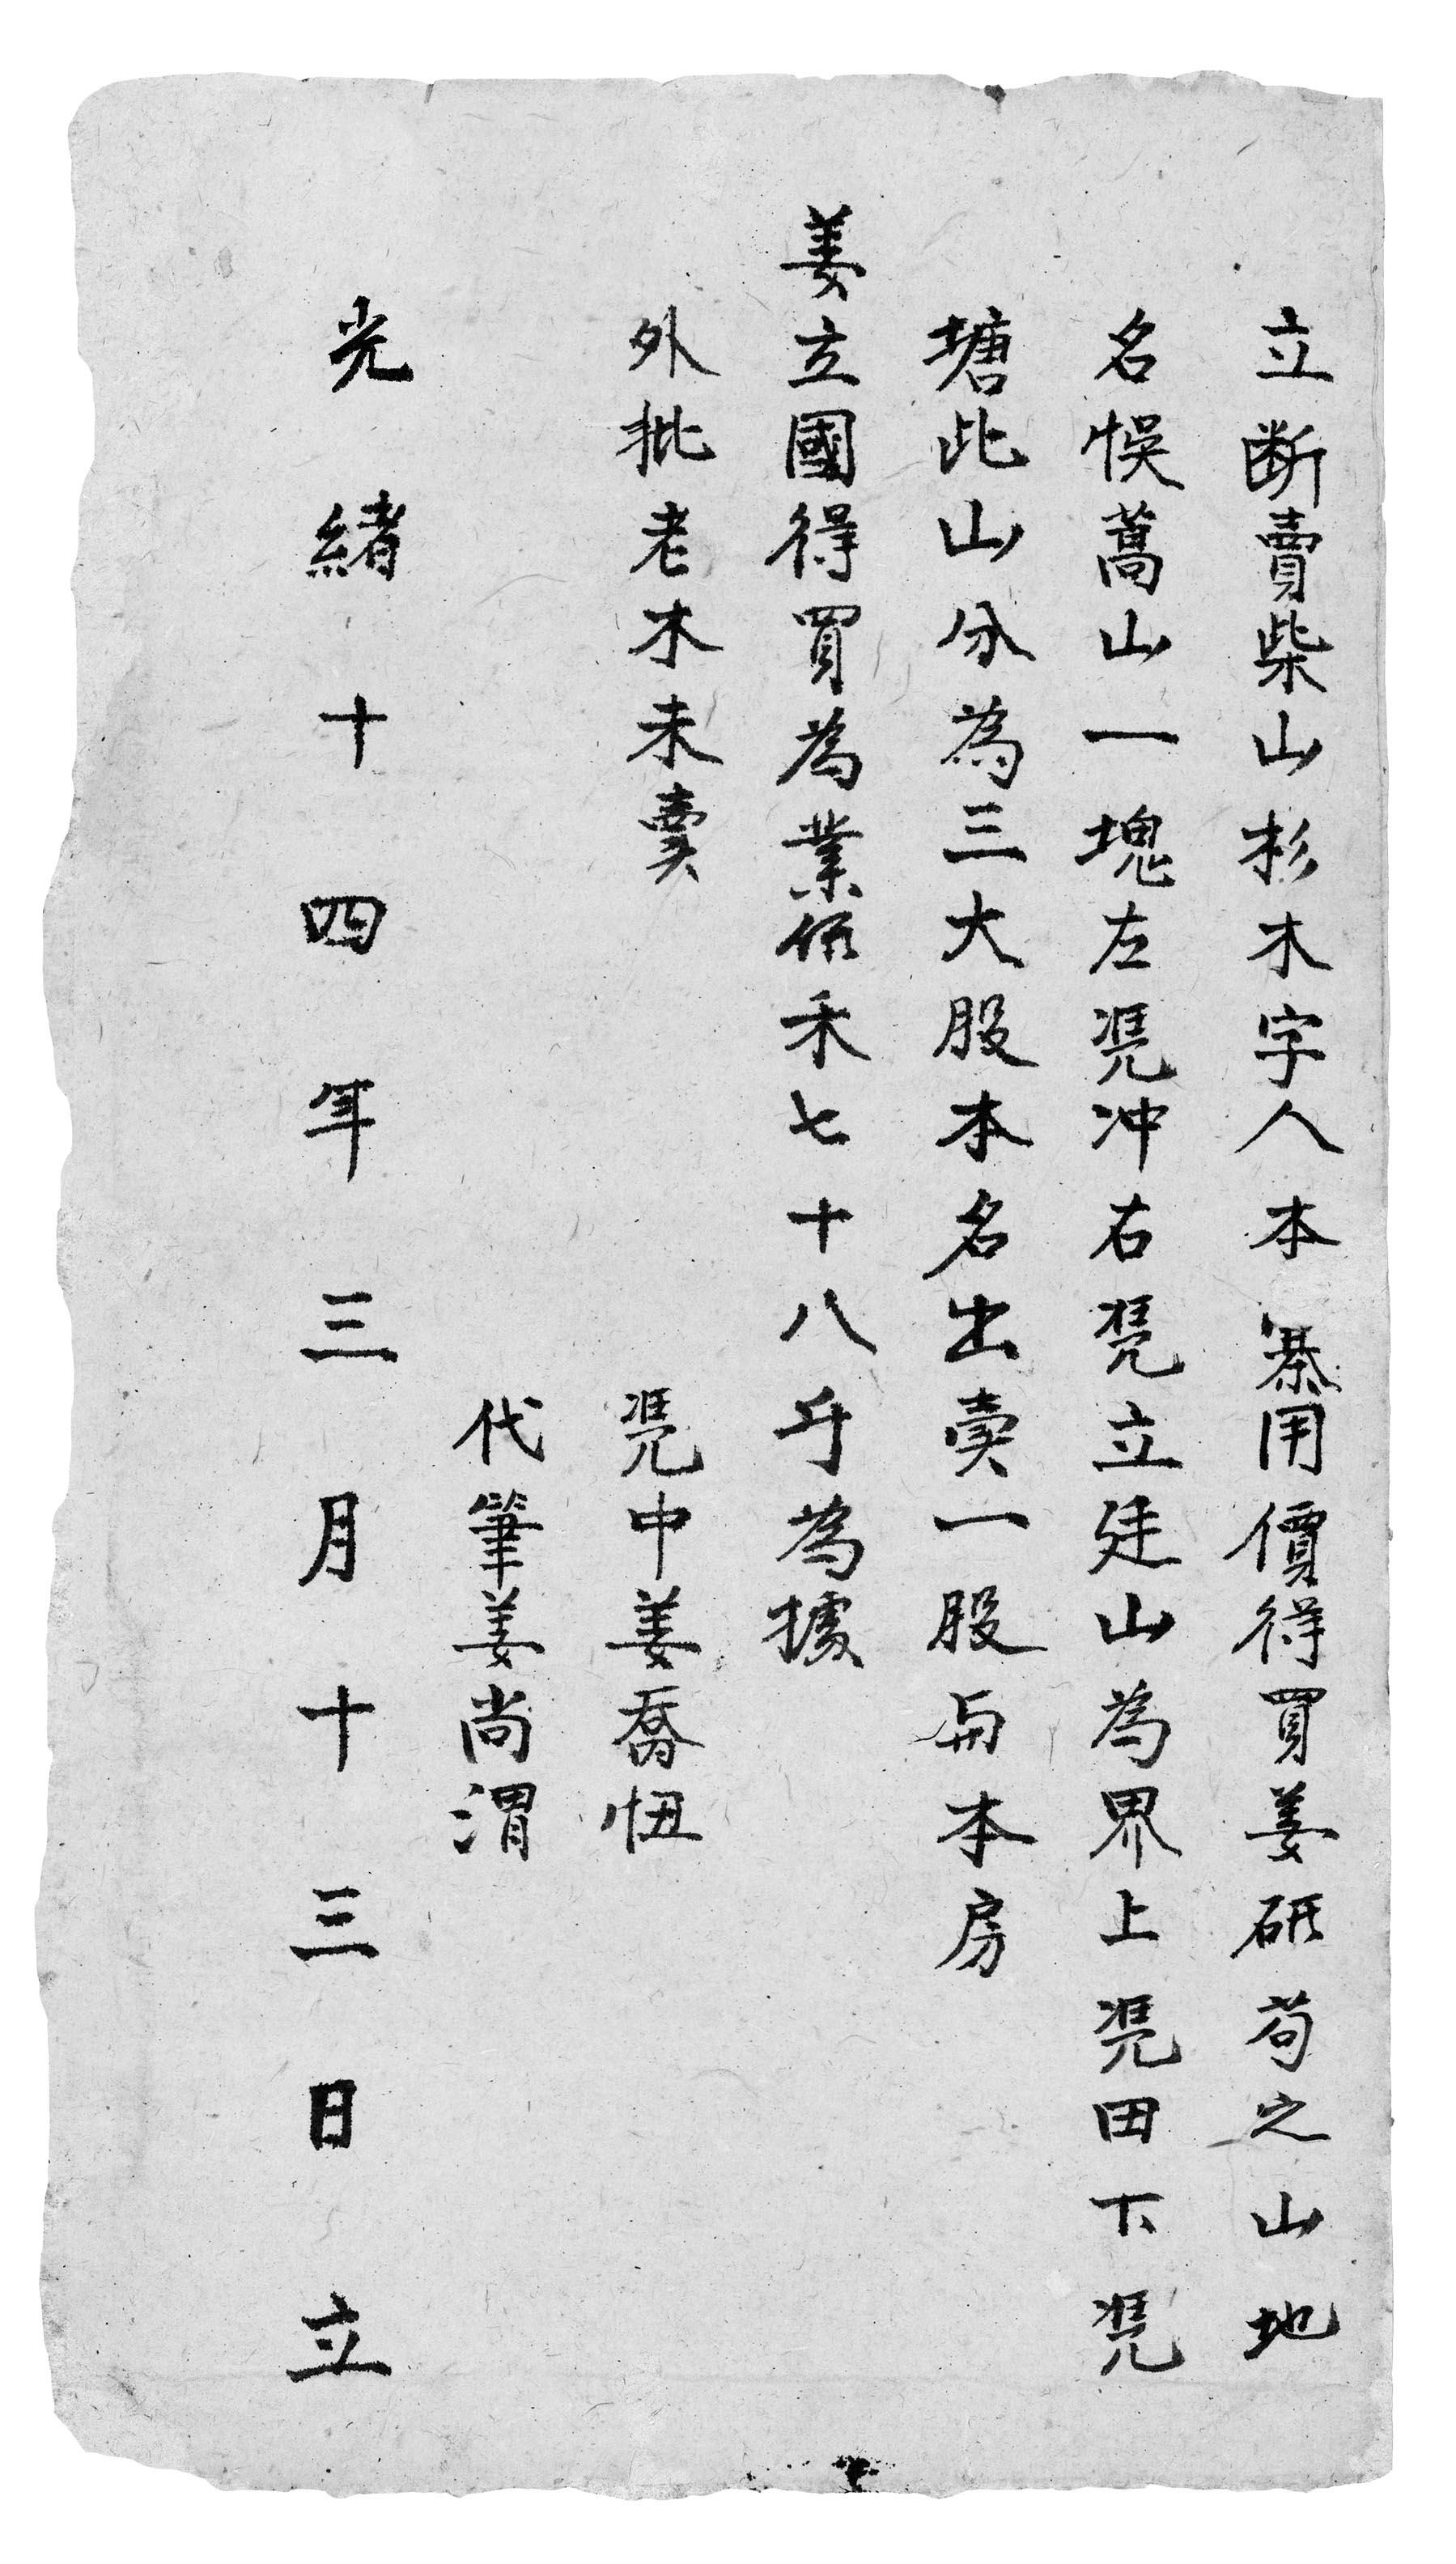 立断賣柴山杉木字人本寨用價得買姜砥苟之山地
名悮蒿山一塊左凴冲右凴立廷山為界上凴田下凴
塘此山分為三大股本名出賣一股与本房
姜立國得買為業価禾七十八斤為據
外批老木未賣
凴中姜喬忸
代筆姜尚渭
光緒十四年三月十三日立